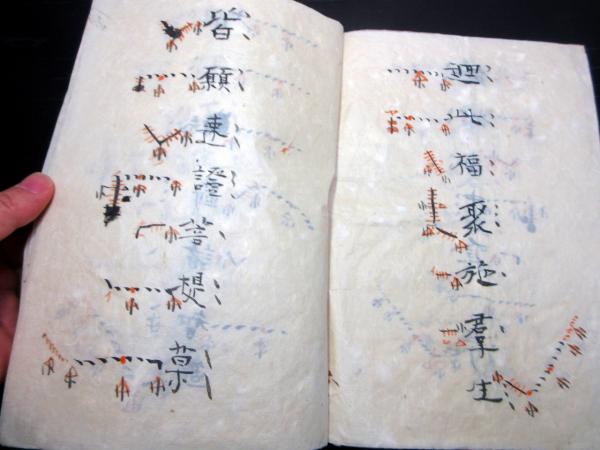 迴此福聚施羣生
皆願速證菩提菓